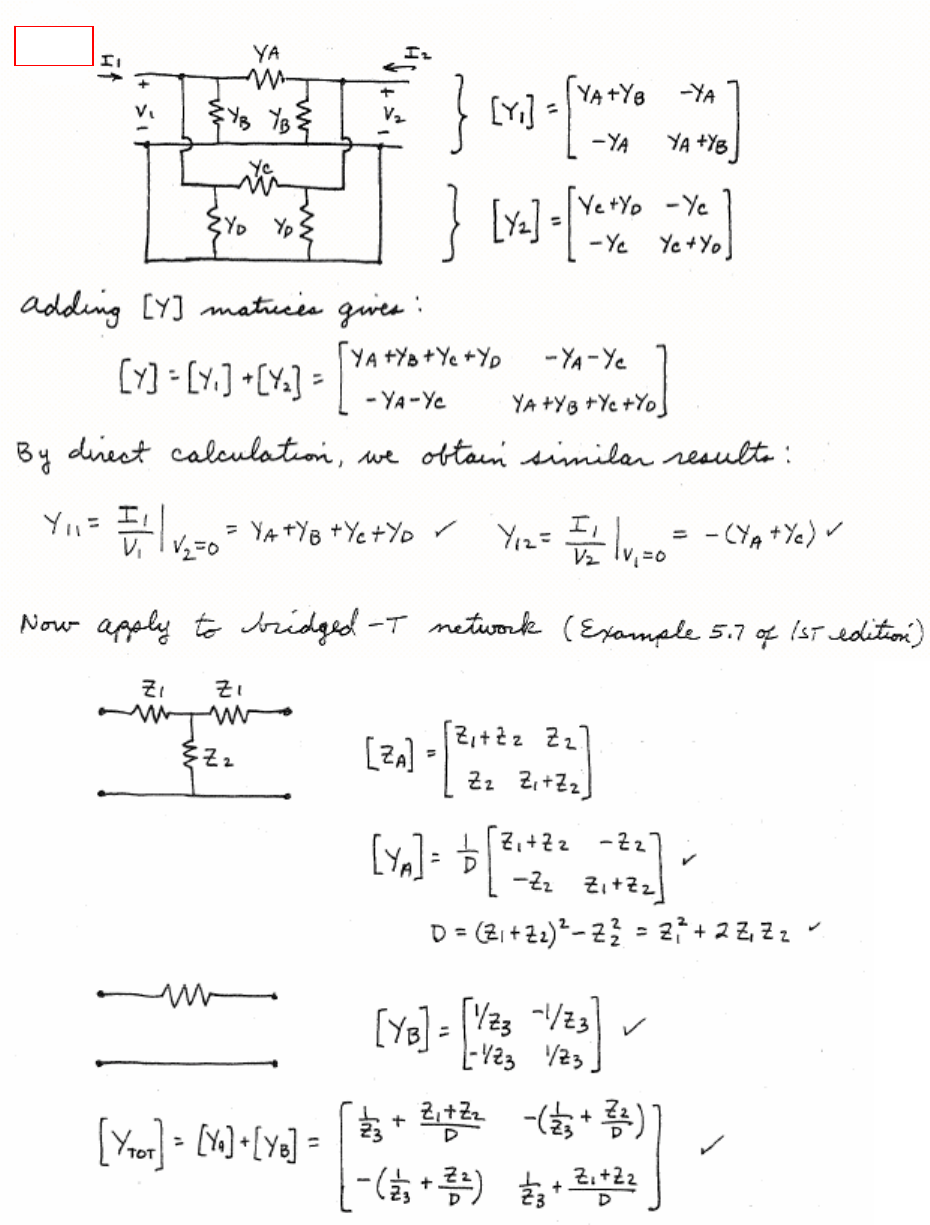 I1 YA I2
+ + 
V1 YB YB V2 [Y1] = [YA+YB -YA
- - -YA YA+YB]
YC
YD YD [Y2] = [YC+YD -YC
-YC YC+YD]
Adding [Y] matrices gives:
[Y] = [Y1] + [Y2] = [YA+YB+YC+YD -YA-YC
-YA-YC YA+YB+YC+YD]
By direct calculation, we obtain similar results:
Y11 = I1/V1 |V2=0 = YA+YB+YC+YD ✓ Y12 = I1/V2 |V1=0 = -(YA+YC) ✓
Now apply to bridged-T network (Example 5.7 of 1ST edition)
Z1 Z1
Z2 [ZA] = [Z1+Z2 Z2
Z2 Z1+Z2]
[YA] = 1/D [Z1+Z2 -Z2
-Z2 Z1+Z2] ✓
D = (Z1+Z2)² - Z2² = Z1² + 2Z1Z2 ✓
[YB] = [1/Z3 -1/Z3
-1/Z3 1/Z3] ✓
[YTOT] = [YA] + [YB] = [1/Z3 + (Z1+Z2)/D -(1/Z3 + Z2/D)
-(1/Z3 + Z2/D) 1/Z3 + (Z1+Z2)/D] ✓